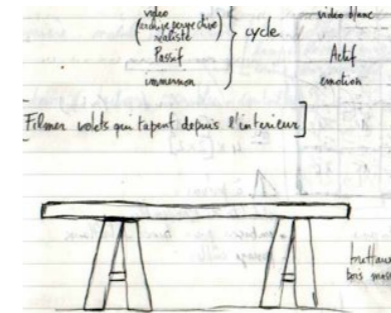 video
(archive perspective
réaliste)
Passif
immersion
} cycle
video blanc
Actif
emotion
[Filmer volets qui tapent depuis l'interieur]
bois